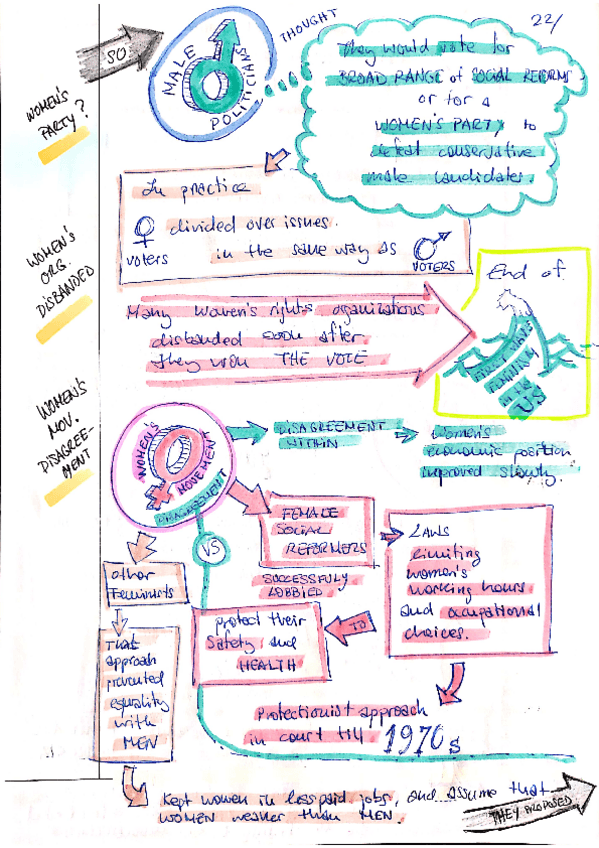 22/
SO
MALE
POLITICIANS
THOUGHT
They would vote for
BROAD RANGE of SOCIAL REFORMS
or for a
WOMEN'S PARTY to
defeat conservative
male candidates.
WOMEN'S
PARTY?
In practice
divided over issues.
voters
in the same way as
VOTERS
WOMEN'S
ORG.
DISBANDED
Many women's rights organizations
disbanded soon after
they won THE VOTE
End of
FIRST WAVE
FEMINISM
IN THE
US
WOMEN'S
MOV.
DISAGREE-
MENT
WOMEN'S
MOVEMENT
DISAGREEMENT
DISAGREEMENT
WITHIN
Women's
economic position
improved slowly.
VS
FEMALE
SOCIAL
REFORMERS
SUCCESSFULLY
LOBBIED
LAWS
limiting
women's
working hours
and occupational
choices.
TO
protect their
Safety and
HEALTH
Protectionist approach
in court till 1970s
Other
Feminists
THAT
approach
prevented
equality
with
MEN
Kept women in less paid jobs, and assume that
WOMEN weaker than MEN.
THEY PROPOSED